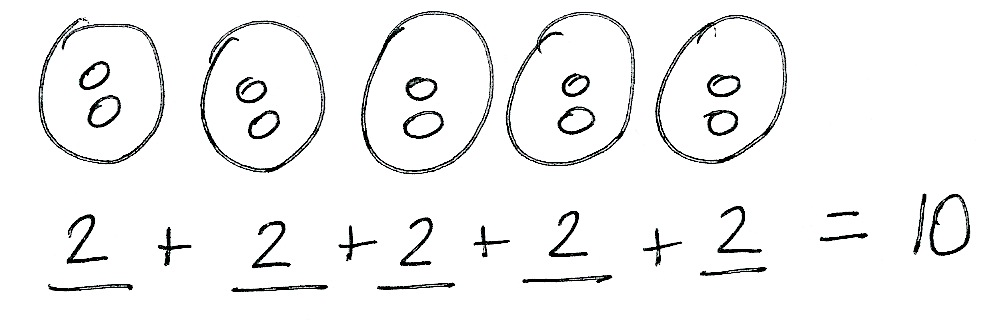 2 + 2 + 2 + 2 + 2 = 10